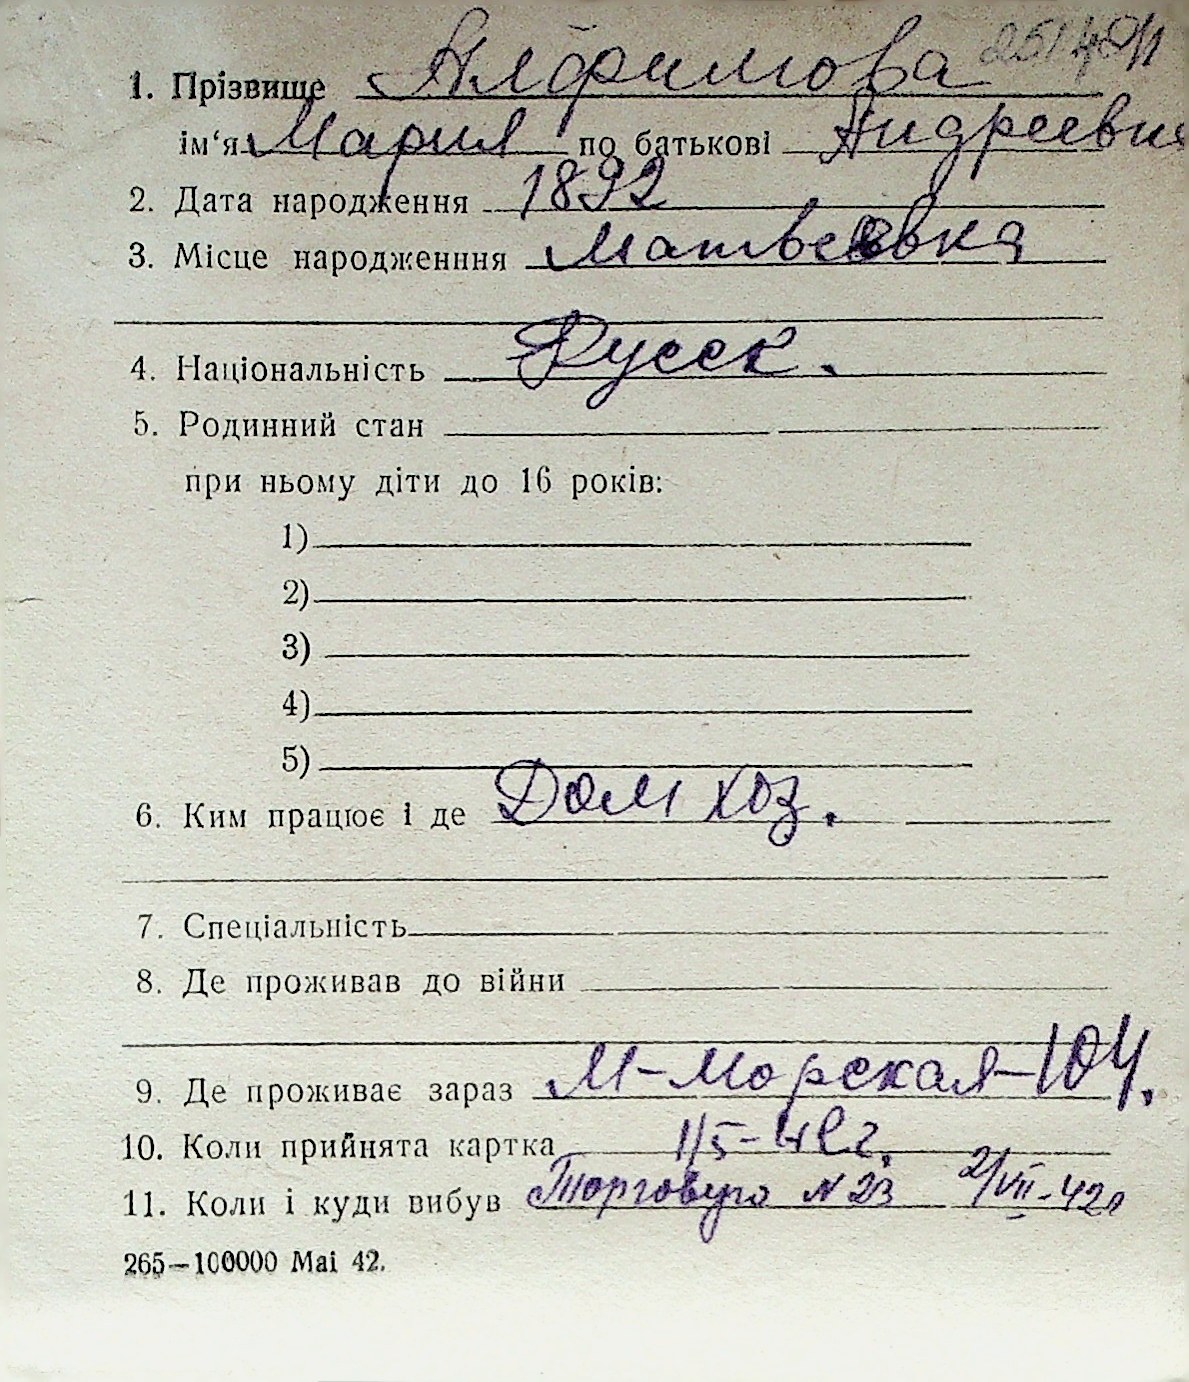 1. Прізвище Алфимова
ім‘я Мария по батькові Андреевна
2. Дата народження 1892
3. Місце народженння Матвеевка
4. Національність Русск.
5. Родинний стан
при ньому діти до 16 років:
1)
2)
3)
4)
5)
6. Ким працює і де Дом хоз.
7. Спеціальність
8. Де проживав до війни
9. Де проживає зараз М-Морская-104.
10. Коли прийнята картка 1/5-42г.
11. Коли і куди вибув Торговую N 23 2/VII-42г
265—100000 Mai 42.